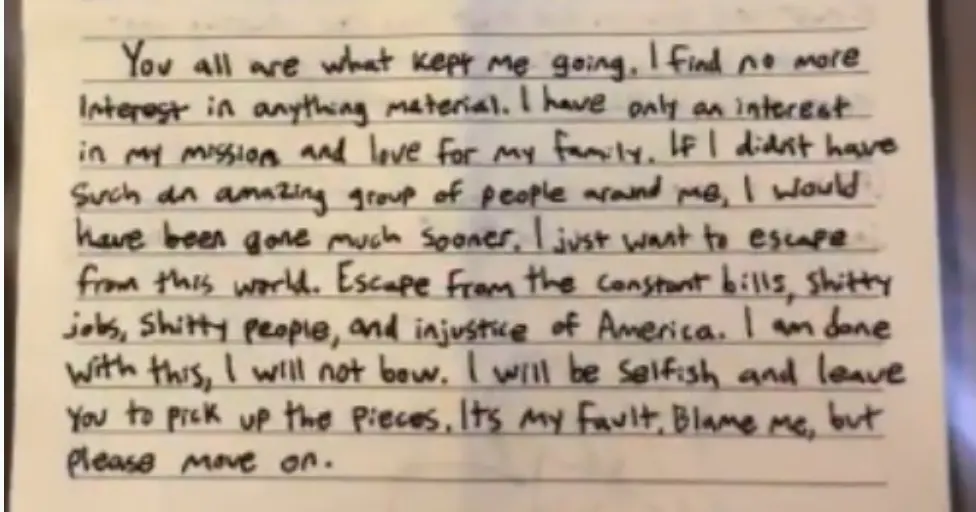 You all are what kept me going. I find no more
Interest in anything material. I have only an interest
in my mission and love for my family. If I didn't have
Such an amazing group of people around me, I would
have been gone much sooner. I just want to escape
from this world. Escape from the constant bills, shitty
jobs, shitty people, and injustice of America. I am done
with this, I will not bow. I will be selfish and leave
you to pick up the pieces. Its my fault. Blame me, but
please move on.